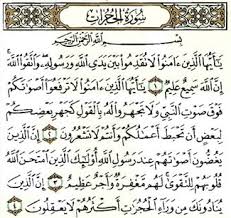 سُورَةُ الحُجُرَاتِ
بِسْمِ اللَّهِ الرَّحْمَٰنِ الرَّحِيمِ
يَٰٓأَيُّهَا ٱلَّذِينَ ءَامَنُوا۟ لَا تُقَدِّمُوا۟ بَيْنَ يَدَىِ ٱللَّهِ وَرَسُولِهِۦ وَٱتَّقُوا۟ ٱللَّهَ
إِنَّ ٱللَّهَ سَمِيعٌ عَلِيمٌ ١ يَٰٓأَيُّهَا ٱلَّذِينَ ءَامَنُوا۟ لَا تَرْفَعُوٓا۟ أَصْوَٰتَكُمْ
فَوْقَ صَوْتِ ٱلنَّبِىِّ وَلَا تَجْهَرُوا۟ لَهُۥ بِٱلْقَوْلِ كَجَهْرِ بَعْضِكُمْ
لِبَعْضٍ أَن تَحْبَطَ أَعْمَٰلُكُمْ وَأَنتُمْ لَا تَشْعُرُونَ ٢ إِنَّ ٱلَّذِينَ
يَغُضُّونَ أَصْوَٰتَهُمْ عِندَ رَسُولِ ٱللَّهِ أُو۟لَٰٓئِكَ ٱلَّذِينَ ٱمْتَحَنَ ٱللَّهُ
قُلُوبَهُمْ لِلتَّقْوَىٰ لَهُم مَّغْفِرَةٌ وَأَجْرٌ عَظِيمٌ ٣ إِنَّ ٱلَّذِينَ
يُنَادُونَكَ مِن وَرَآءِ ٱلْحُجُرَٰتِ أَكْثَرُهُمْ لَا يَعْقِلُونَ ٤